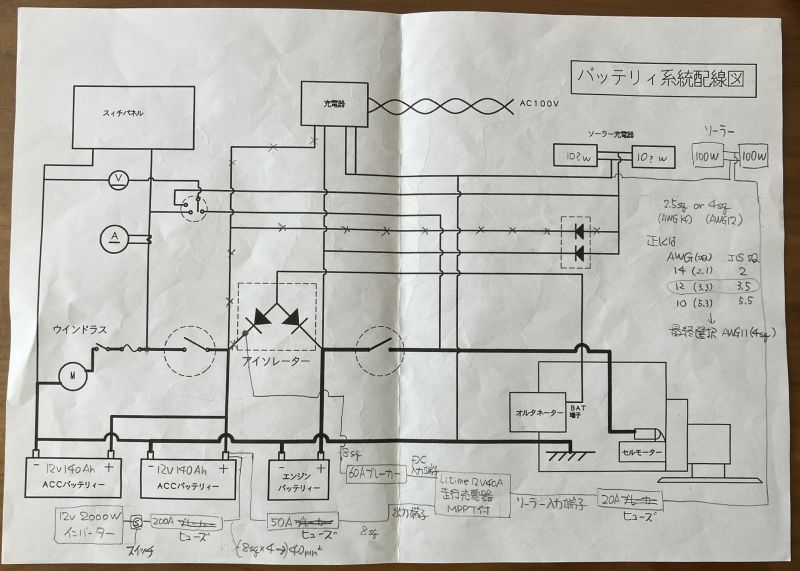 バッテリィ系統配線図
スィチパネル
充電器
AC100V
ソーラー充電器
ソーラー
10?w
10?w
100W
100W
V
A
2.5sq or 4sq
(AWG14) (AWG12)
正しくは
AWG(sq) JIS sq
14 (2.1) 2
12 (3.3) 3.5
10 (5.3) 5.5
↓
最終選択 AWG11(4sq)
ウインドラス
M
アイソレーター
オルタネーター
BAT
端子
セルモーター
- 12V140Ah +
ACCバッテリー
- 12V140Ah +
ACCバッテリー
- エンジン +
バッテリー
8sq
60Aブレーカー
DC
入力端子
Litime12V40A
走行充電器
MPPT付
ソーラー入力端子
20Aブレーカー
ヒューズ
12V 2000W
インバーター
S
スイッチ
200Aブレーカー
ヒューズ
(8sq×4→)40mm²
50Aブレーカー
ヒューズ
8sq
出力端子